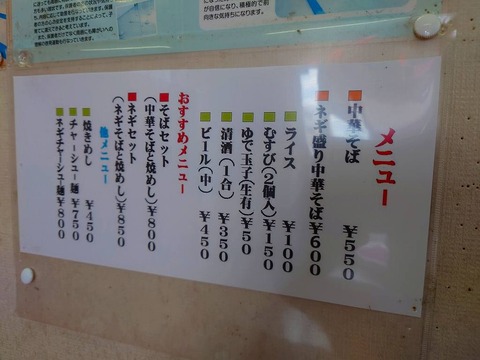 メニュー
■中華そば ￥550
■ネギ盛り中華そば￥600
■ライス ￥100
■むすび(2個入)￥150
■ゆで玉子(生有)￥50
■清酒(1合)￥350
■ビール(中)￥450
おすすめメニュー
■そばセット
(中華そばと焼めし)￥800
■ネギセット
(ネギそばと焼めし)￥850
他メニュー
■焼きめし ￥450
■チャーシュー麺 ￥750
■ネギチャーシュー麺 ￥800